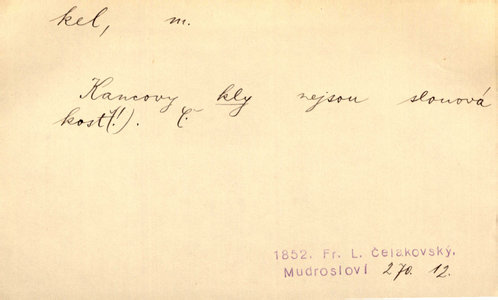 kel, m.
Kancovy kly nejsou slonová
kost(!). Č.
1852. Fr. L. Čelakovský.
Mudrosloví 270. 12.